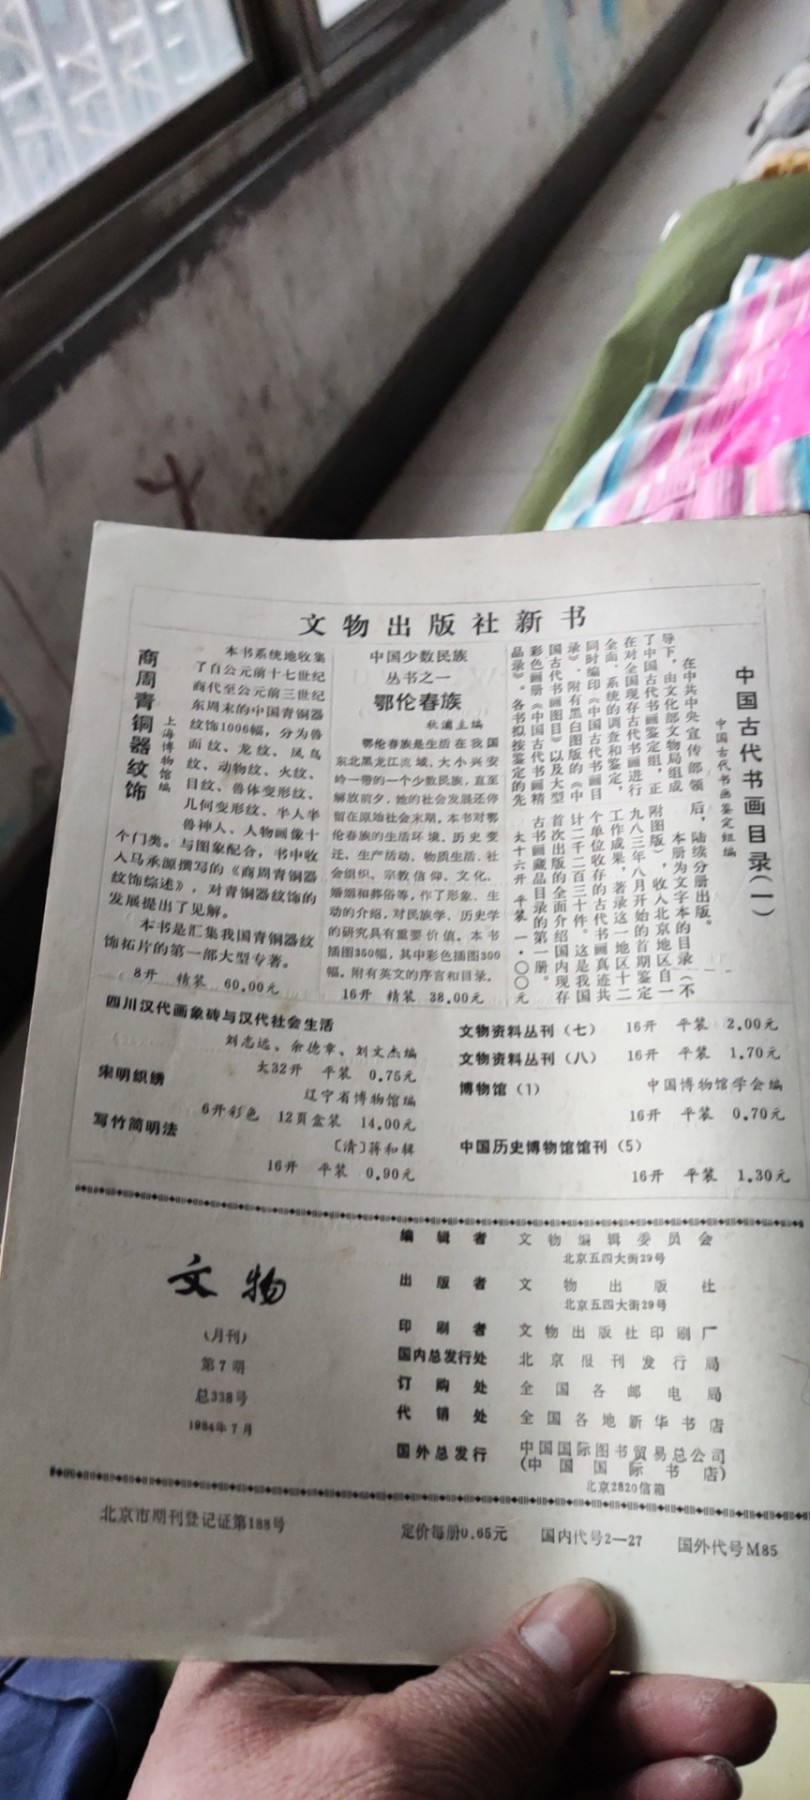 文物出版社新书
中国古代书画目录（一）
中国古代书画鉴定组编
在中共中央宣传部领
导下，由文化部文物局组成
了中国古代书画鉴定组，正
在对全国现存古代书画进行
全面、系统的调查和鉴定，
同时编印《中国古代书画目
录》，附有黑白图版的《中
国古代书画图目》以及大型
彩色画册《中国古代书画精
品录》。各书拟按鉴定的先
后，陆续分册出版。
本册为文字本的目录（不
附图版），收入北京地区自一
九八三年八月开始的首期鉴定
工作成果，著录这一地区十二
个单位收存的古代书画真迹共
计二千二百三十件。这是我国
首次出版的全面介绍国内现存
古书画藏品目录的第一册。
大十六开 平装 一·〇〇元
中国少数民族
丛书之一
鄂伦春族
秋浦主编
鄂伦春族是生活在我国
东北黑龙江流域，大小兴安
岭一带的一个少数民族，直至
解放前夕，她的社会发展还停
留在原始社会末期。本书对鄂
伦春族的生活环境、历史变
迁、生产活动、物质生活、社
会组织、宗教信仰、文化、
婚姻和葬俗等，作了形象、生
动的介绍，对民族学、历史学
的研究具有重要价值。本书
插图350幅，其中彩色插图300
幅。附有英文的序言和目录。
16开 精装 38.00元
商周青铜器纹饰
上海博物馆编
本书系统地收集
了自公元前十七世纪
商代至公元前三世纪
东周末的中国青铜器
纹饰1006幅，分为兽
面纹、龙纹、凤鸟
纹、动物纹、火纹、
目纹、兽体变形纹、
几何变形纹、半人半
兽神人、人物画像十
个门类。与图象配合，书中收
入马承源撰写的《商周青铜器
纹饰综述》，对青铜器纹饰的
发展提出了见解。
本书是汇集我国青铜器纹
饰拓片的第一部大型专著。
8开 精装 60.00元
四川汉代画象砖与汉代社会生活
刘志远、余德章、刘文杰编
大32开 平装 0.75元
宋明织绣
辽宁省博物馆编
6开彩色 12页盒装 14.00元
写竹简明法
〔清〕蒋和辑
16开 平装 0.90元
文物资料丛刊（七） 16开 平装 2.00元
文物资料丛刊（八） 16开 平装 1.70元
博物馆（1） 中国博物馆学会编
16开 平装 0.70元
中国历史博物馆馆刊（5）
16开 平装 1.30元
文物
（月刊）
第7期
总338号
1984年7月
编辑者 文物编辑委员会
北京五四大街29号
出版者 文物出版社
北京五四大街29号
印刷者 文物出版社印刷厂
国内总发行处 北京报刊发行局
订购处 全国各邮电局
代销处 全国各地新华书店
国外总发行 中国国际图书贸易总公司
(中国国际书店)
北京2820信箱
北京市期刊登记证第188号
定价每册0.65元 国内代号2—27 国外代号M85